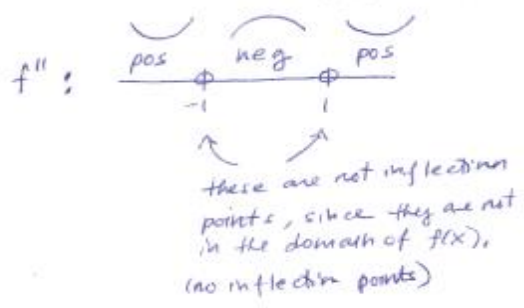 pos neg pos
f" :
-1 1
these are not inflection
points, since they are not
in the domain of f(x).
(no inflection points)